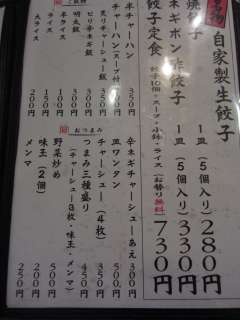 名物 自家製生餃子
焼餃子 1皿（5個入り）280円
ネギポン酢餃子 1皿（5個入り）330円
餃子定食 餃子10個・スープ・小鉢・ライス（お替り無料）730円
半チャーハン 350円
チャーハン（スープ付）
炙りチャーシュー飯
ピリ辛ネギ飯
明太飯
半ライス 100円
ライス 150円
大ライス 200円
おつまみ
辛ネギチャーシューあえ 300円
皿ワンタン
チャーシュー（4枚）
つまみ三種盛り
（チャーシュー3枚・味玉・メンマ）
野菜炒め 500円
味玉（2個）
メンマ 250円